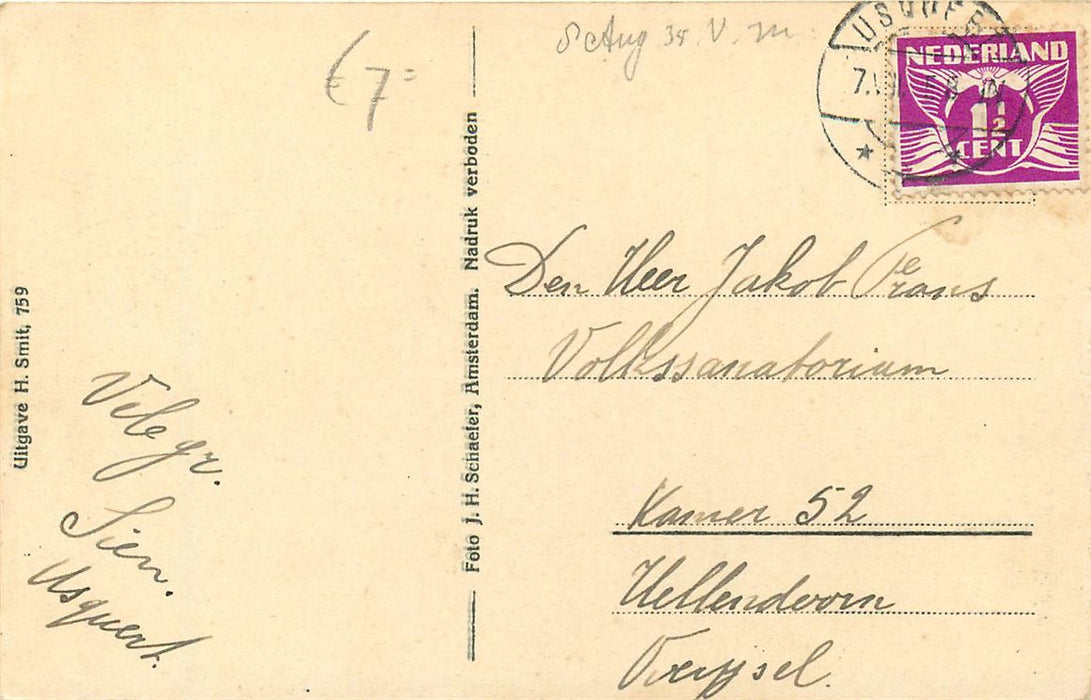 € 7=
8 Aug 34 V. M
USQUERT
NEDERLAND
1½
CENT
Uitgave H. Smit, 759
Foto J. H. Schaefer, Amsterdam. Nadruk verboden
Den Heer Jakob
Volkssanatorium
Kamer 52
Hellendoorn
Overijsel.
Vele gr.
Sien.
Usquert.